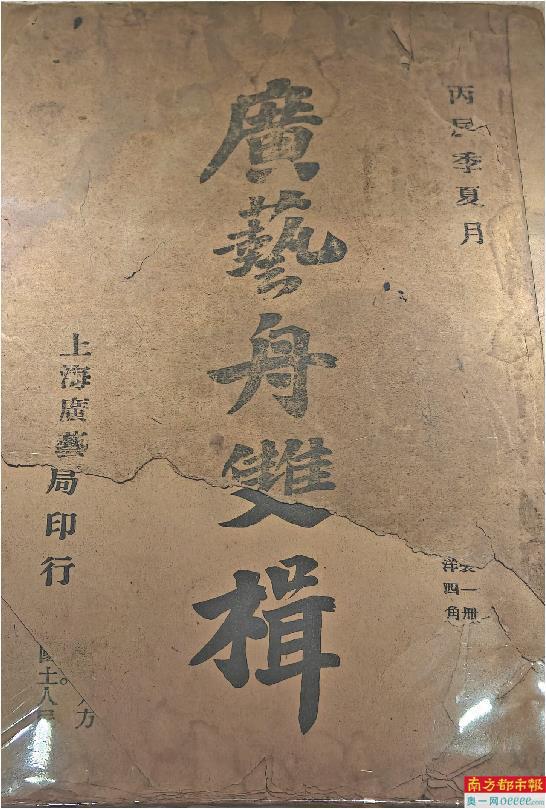 丙辰季夏月
裝一冊
洋四角
廣藝舟雙楫
上海廣藝局印行
方
土人
南方都市報
奥一网oeeee.com